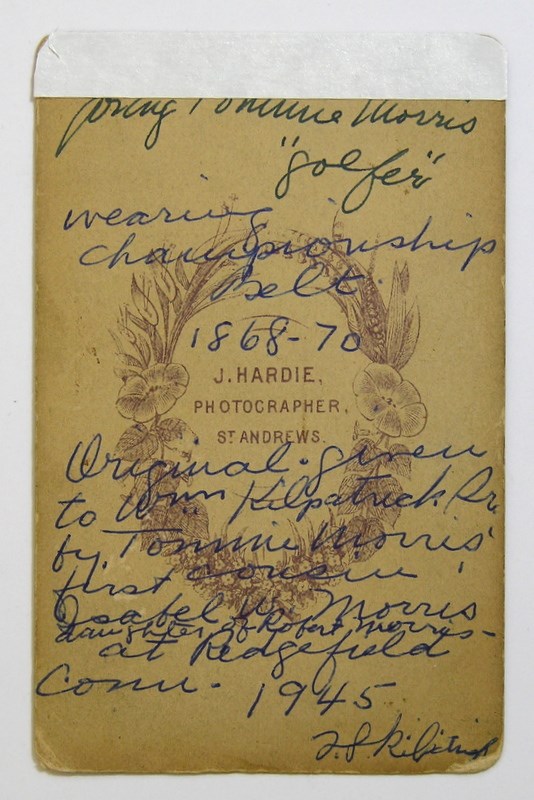 young Tommie Morris
"golfer"
wearing
championship
Belt.
1868-70
J. HARDIE,
PHOTOGRAPHER,
ST ANDREWS.
Original given
to Wm Kilpatrick Sr.
by Tommie Morris'
first cousin,
Isabel W. Morris
daughter of Robert Morris -
at Ridgefield
Conn - 1945
Kilpatrick